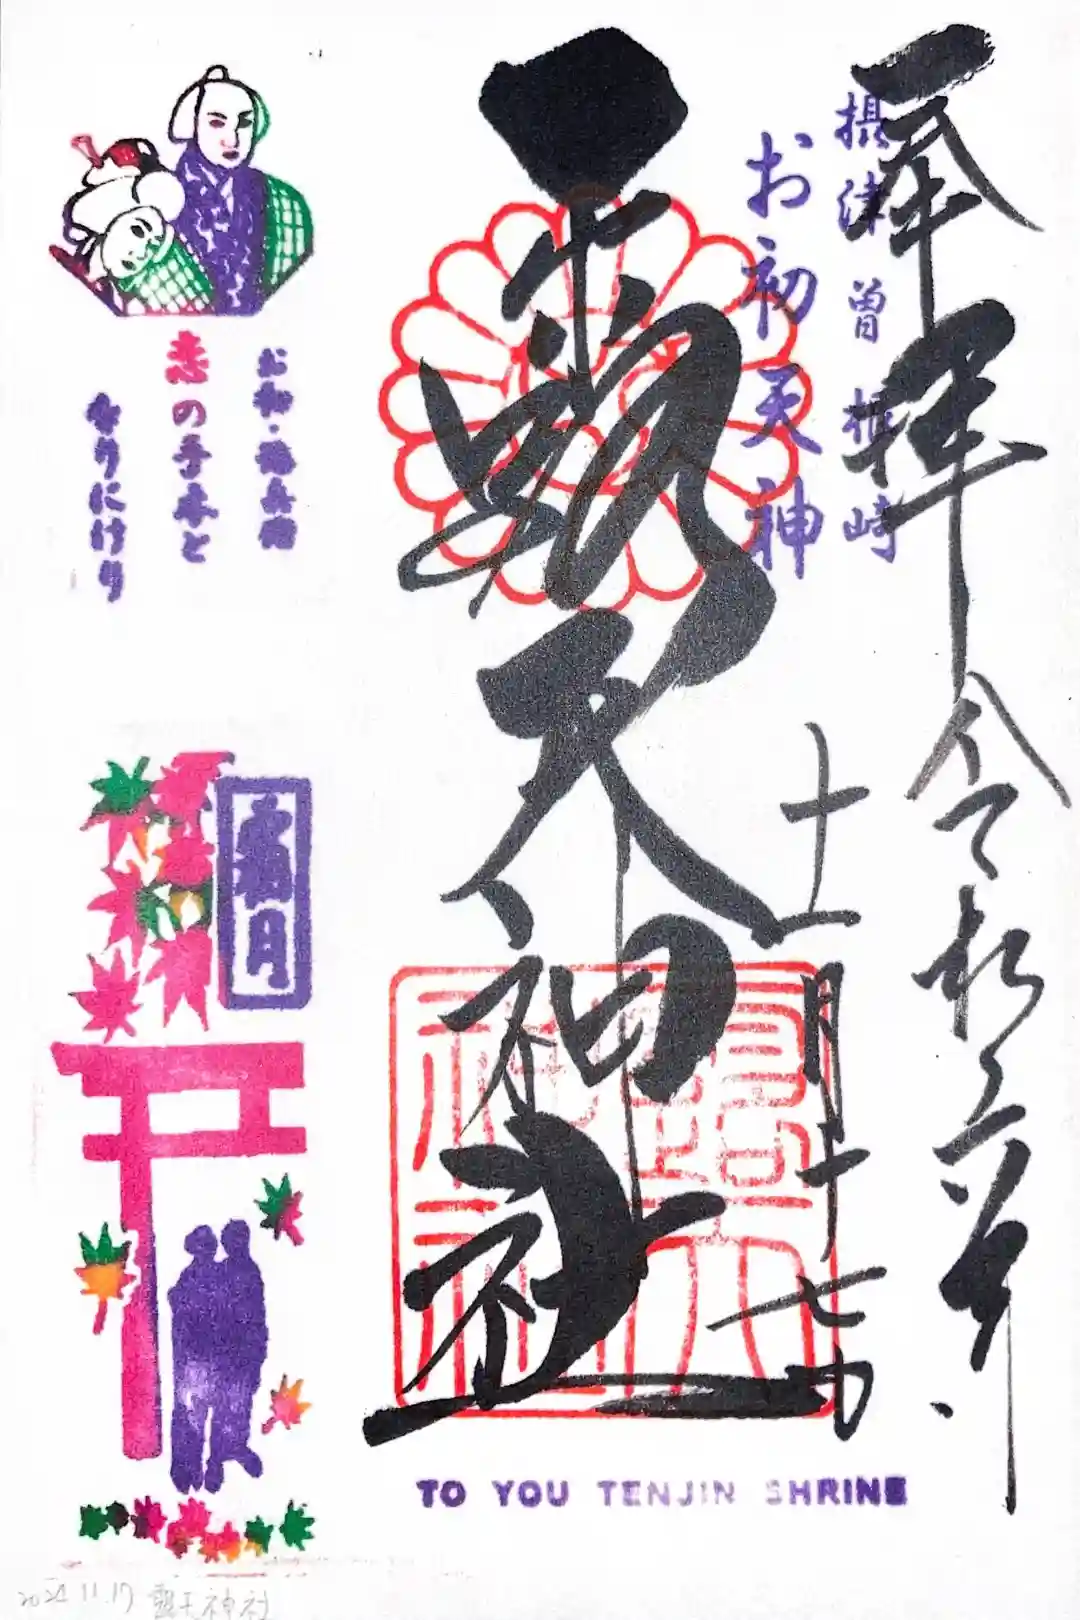 奉拝
摂津 曽根崎
お初天神
令和六年
十一月十七日
露天神社
露天神社
お初・徳兵衛
恋の手本と
なりにけり
霜月
TO YOU TENJIN SHRINE
2024.11.17 露天神社